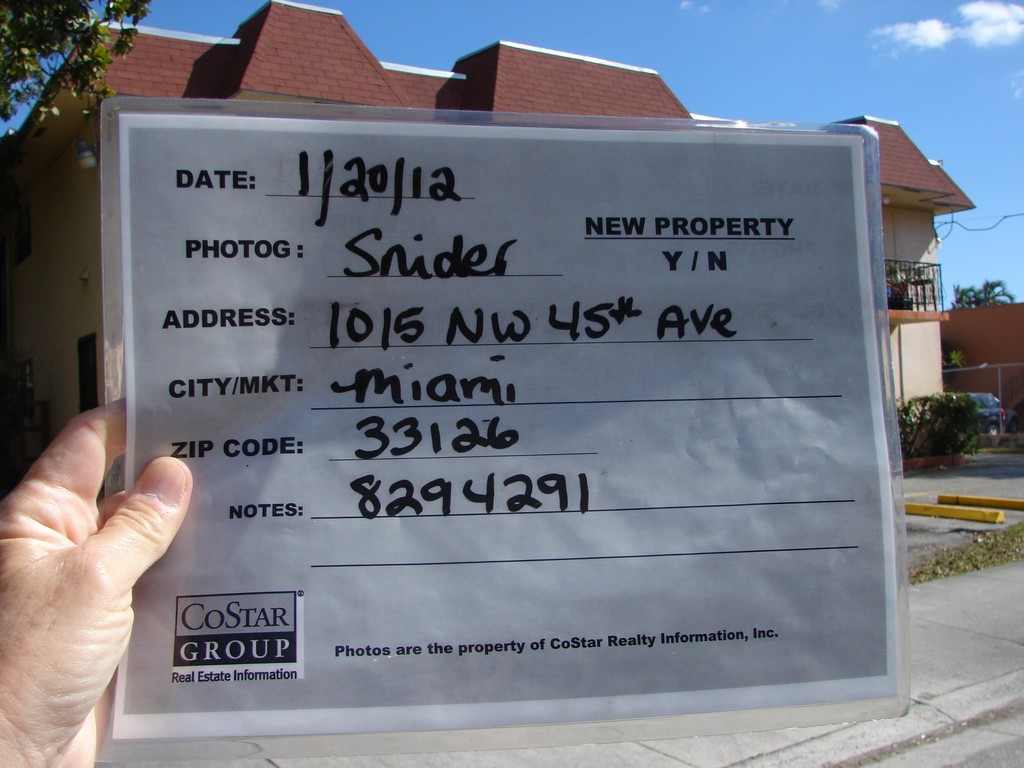 DATE: 1/20/12
PHOTOG: Snider
NEW PROPERTY
Y / N
ADDRESS: 1015 NW 45th Ave
CITY/MKT: Miami
ZIP CODE: 33126
NOTES: 8294291
COSTAR®
GROUP
Real Estate Information
Photos are the property of CoStar Realty Information, Inc.